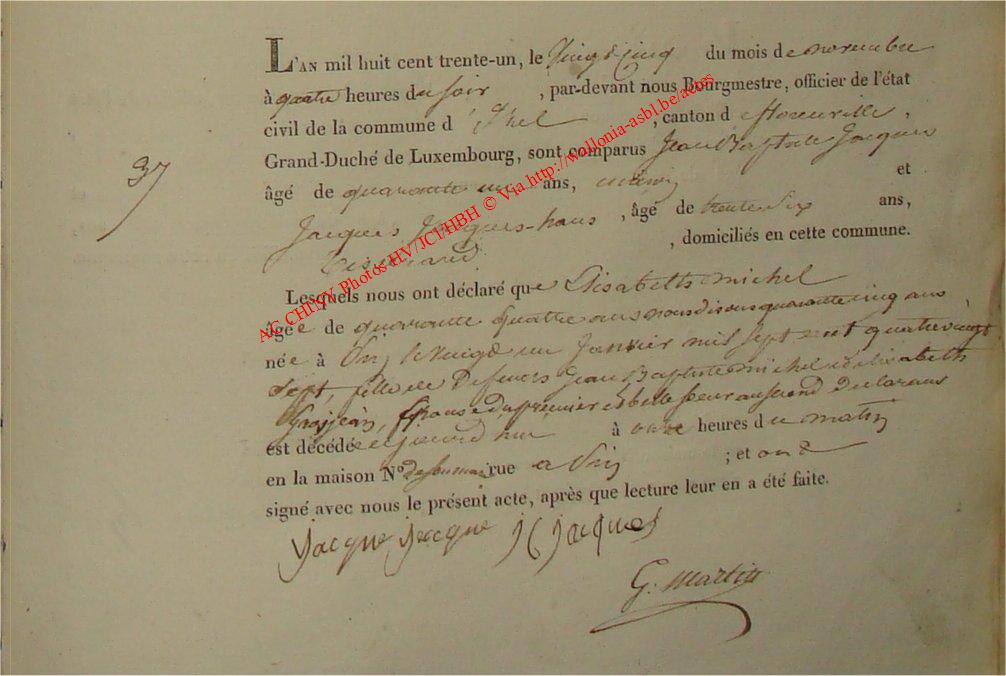 L'AN mil huit cent trente-un, le Vingt Cinq du mois de novembre
à quatre heures du soir, par-devant nous Bourgmestre, officier de l'état
civil de la commune d'Izel, canton de florenville,
Grand-Duché de Luxembourg, sont comparus Jean Baptiste Jacques
37
âgé de quarante un ans, et
Jacques Jacques-hans, âgé de trente Six ans,
, domiciliés en cette commune.
AC CHI/QV Photos HV/JCl/HBH © Via http://wollonia-asbl.be/actes
Lesquels nous ont déclaré que Elisabeth michel
âgée de quarante quatre ans nous disons quarante cinq ans
née à le vingt un Janvier mil sept cent quatre vingt
sept, fille de Defuncts Jean Baptiste michel et elisabeth
Grosjean, Epouse du premier et belle Soeur au second declarans
est décédée aujourd hui à onze heures du matin
en la maison N° rue à ; et ont
signé avec nous le présent acte, après que lecture leur en a été faite.
Jacque Jacque J J Jacques
G. Martin